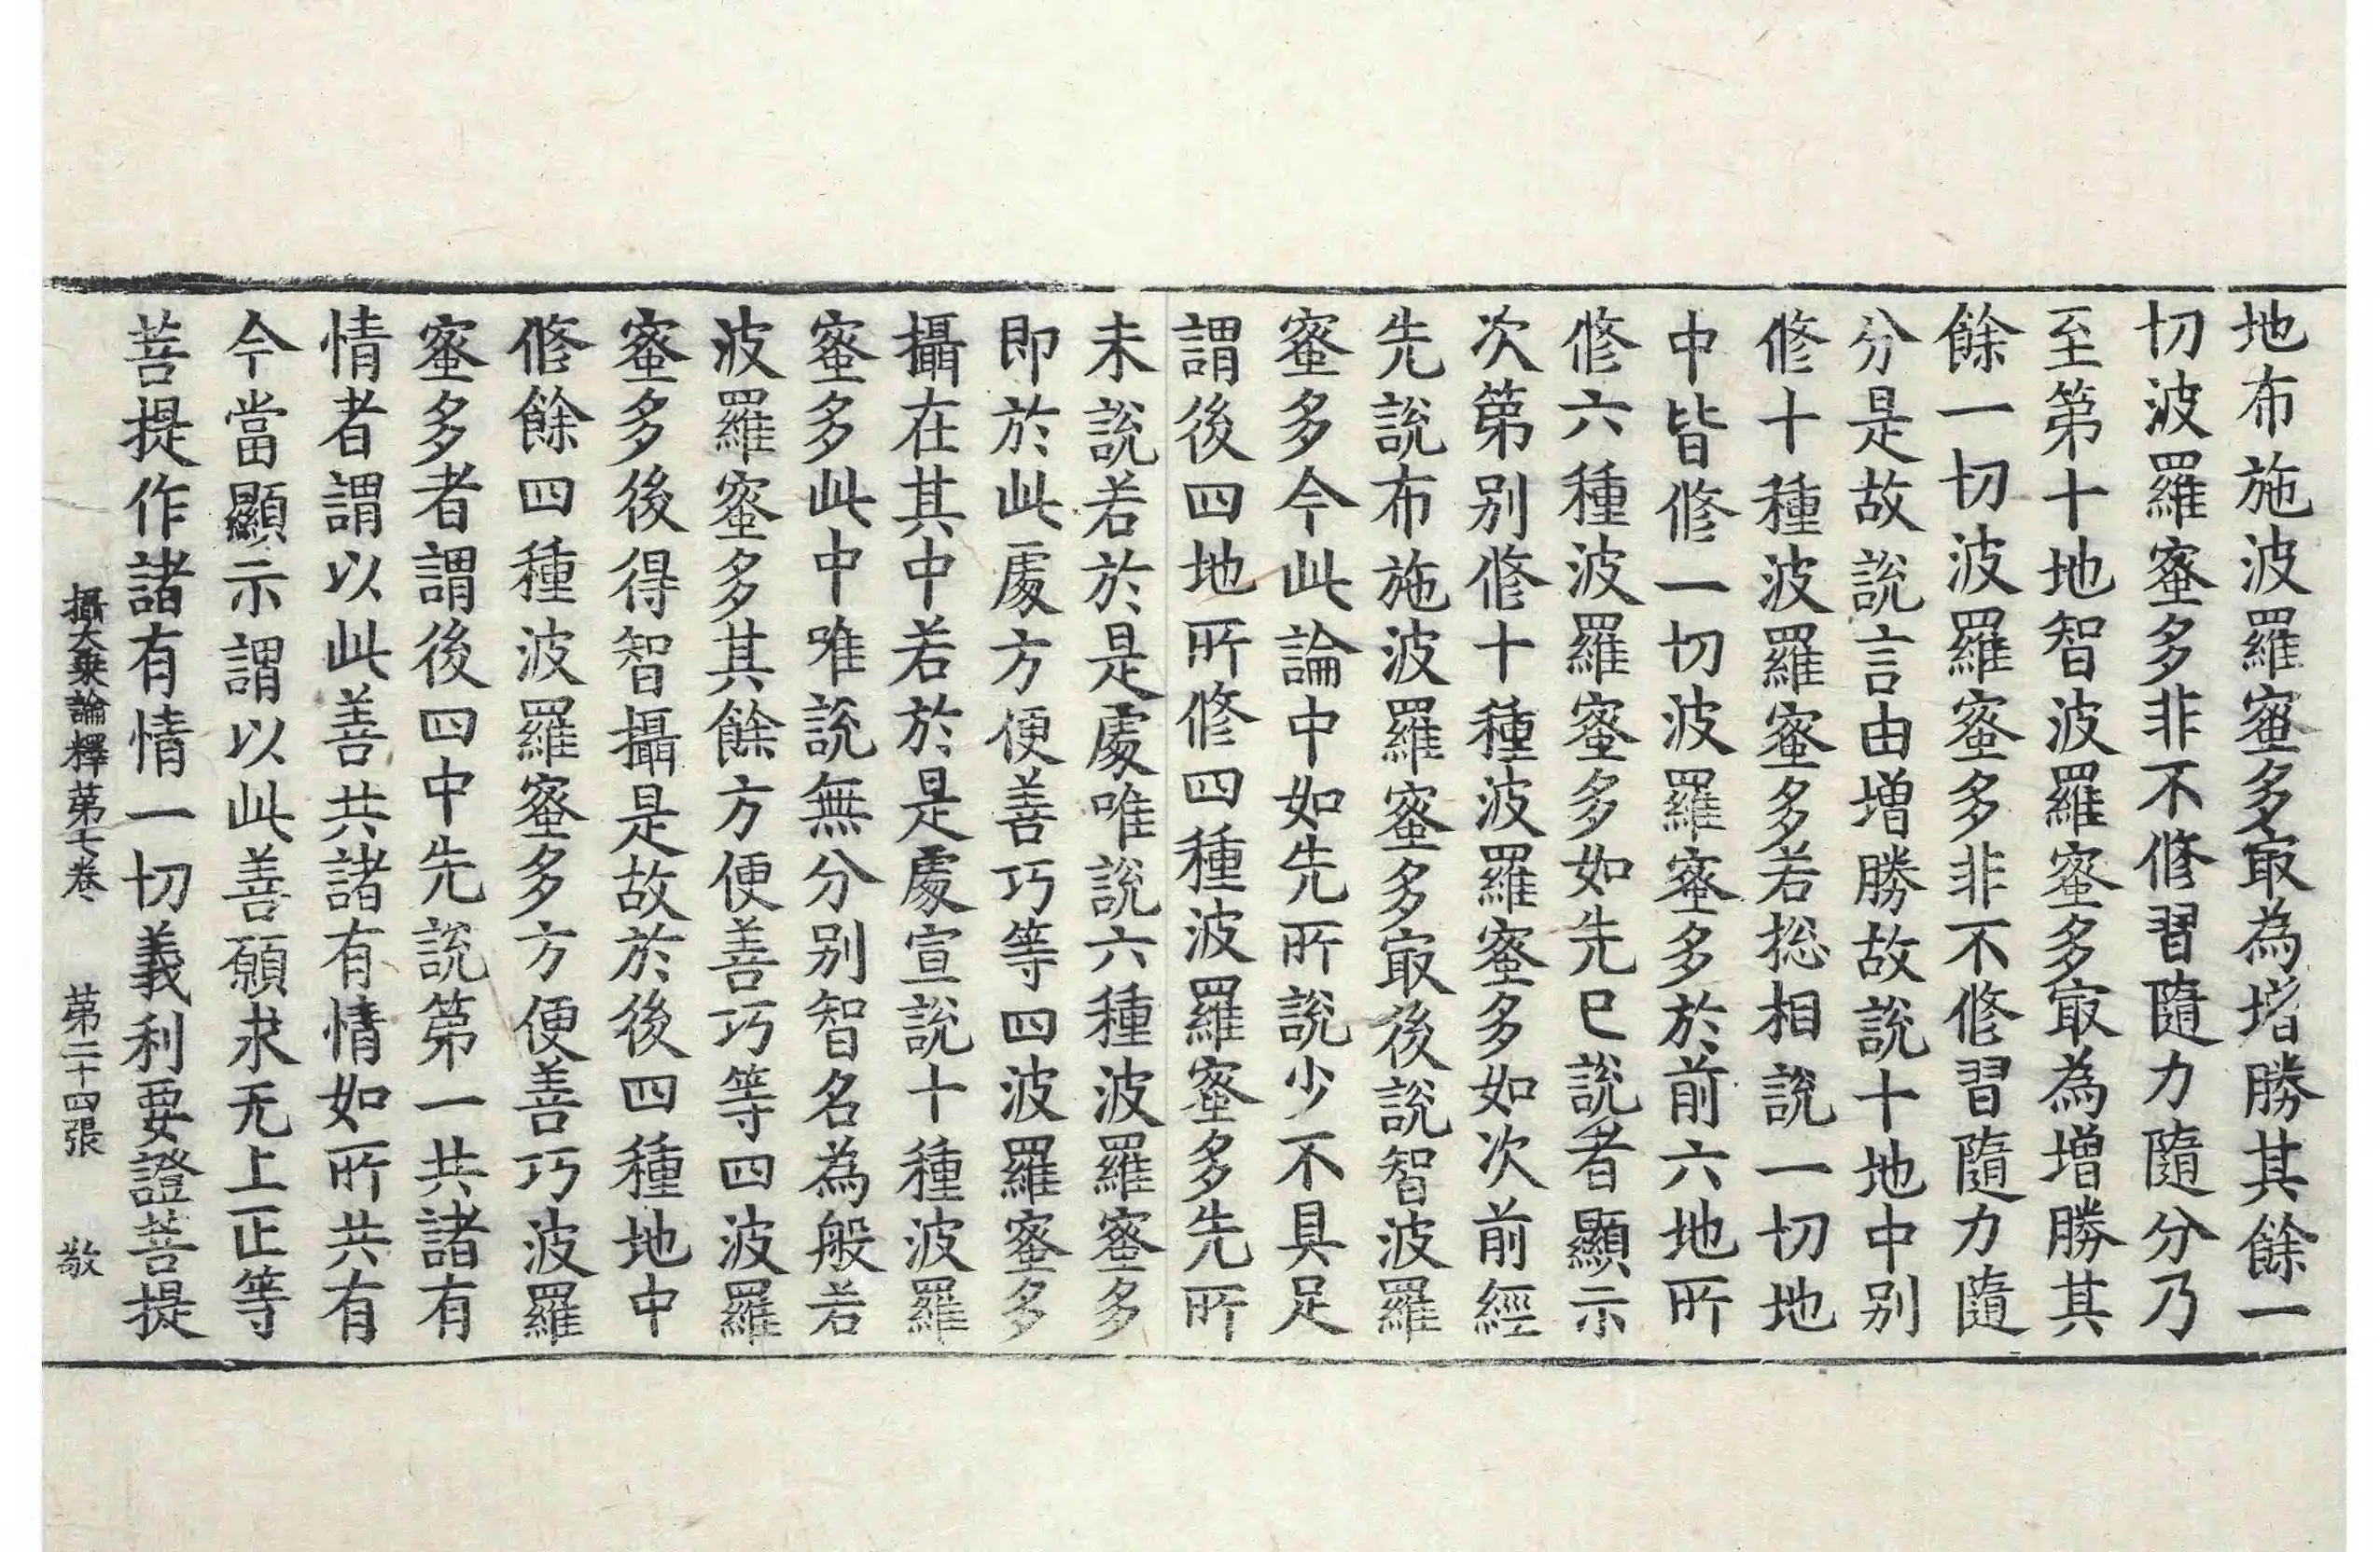 地布施波羅蜜多㝡為增勝其餘一
切波羅蜜多非不修習隨力隨分乃
至第十地智波羅蜜多㝡為增勝其
餘一切波羅蜜多非不修習隨力隨
分是故說言由增勝故說十地中別
修十種波羅蜜多若揔相說一切地
中皆修一切波羅蜜多於前六地所
修六種波羅蜜多如先已說者顯示
次第別修十種波羅蜜多如次前經
先說布施波羅蜜多㝡後說智波羅
蜜多今此論中如先所說少不具足
謂後四地所修四種波羅蜜多先所
未說若於是處唯說六種波羅蜜多
即於此處方便善巧等四波羅蜜多
攝在其中若於是處宣說十種波羅
蜜多此中唯說無分別智名為般若
波羅蜜多其餘方便善巧等四波羅
蜜多後得智攝是故於後四種地中
修餘四種波羅蜜多方便善巧波羅
蜜多者謂後四中先說第一共諸有
情者謂以此善共諸有情如所共有
今當顯示謂以此善願求无上正等
菩提作諸有情一切義利要證菩提
攝大乘論釋第七卷 第二十四張 敬